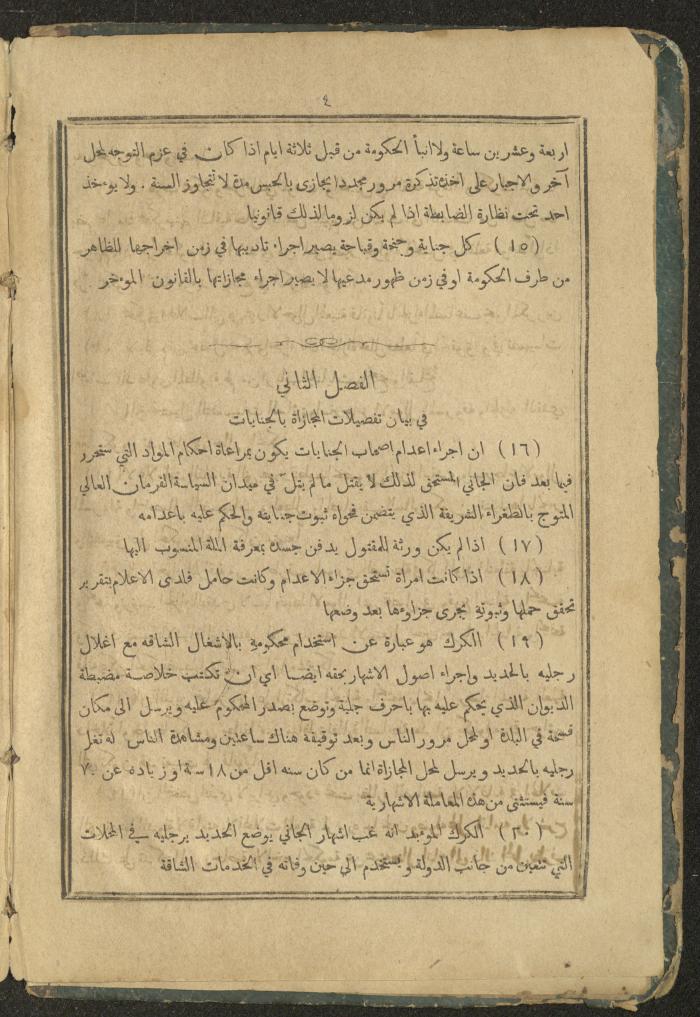 ٤
اربعة وعشرين ساعة ولا انبأ الحكومة من قبل ثلاثة ايام اذا كان في عزم التوجه لمحل
آخر والاجبار على اخذ تذكرة مرور مجددا يجازى بالحبس مدة لا تتجاوز السنة . ولا يوءخذ
احد تحت نظارة الضابطة اذا لم يكن لزوما لذلك قانونيا
(١٥) كل جناية وجنحة وقباحة يصير اجراء تاديبها في زمن اخراجها للظاهر
من طرف الحكومة او في زمن ظهور مدعيها لا يصير اجراء مجازاتها بالقانون الموءخر
الفصل الثاني
في بيان تفصيلات المجازاة بالجنايات
(١٦) ان اجراء اعدام اصحاب الجنايات يكون بمراعاة احكام المواد التي ستحرر
فيما بعد فان الجاني المستحق لذلك لا يقتل ما لم يتلَ في ميدان السياسة الفرمان العالي
المتوج بالطغراء الشريفة الذي يتضمن فحواه ثبوت جنايته والحكم عليه باعدامه
(١٧) اذا لم يكن ورثة للمقتول يدفن جسك بمعرفة الملة المنسوب اليها
(١٨) اذا كانت امراة تستحق جزاء الاعدام وكانت حامل فلدى الاعلام بتقرير
تحقق حملها وثبوته يجرى جزاوءها بعد وضعها
(١٩) الكرك هو عبارة عن استخدام محكومهِ بالاشغال الشاقه مع اغلال
رجليه بالحديد واجراء اصول الاشهار بحقه ايضا اي ان تكتب خلاصة مضبطة
الديوان الذي يحكم عليه بها باحرف جلية وتوضع بصدر المحكوم عليه ويرسل الى مكان
فسحة في البلدة او لمحل مرور الناس وبعد توقيفهِ هناك ساعتين ومشاهدة الناس له تغل
رجليه بالحديد ويرسل لمحل المجازاة انما من كان سنه اقل من ١٨ سنة او زياده عن ٧٠
سنة فيستثنى من هذه المعاملة الاشهارية
(٢٠) الكرك الموءبد انه غب اشهار الجاني يوضع الحديد برجليه في المحلات
التي تتعين من جانب الدولة ويستخدم الى حين وفاته في الخدمات الشاقة